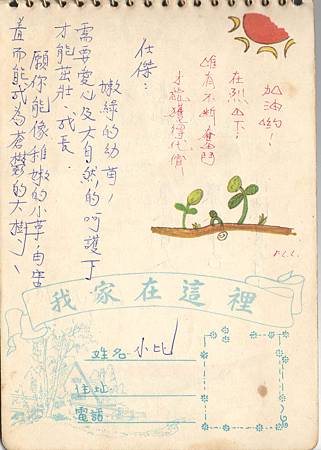 加油喲!
在烈日下!
唯有不斷奮鬥
才能獲得代價
仕傑:
嫩綠的幼苗,
需要愛心及大自然的呵護下
才能茁壯、成長.
願你能像稚嫩的小草,由
而能成為蒼鬱的大樹、
我家在這裡
姓名 小比
住址
電話